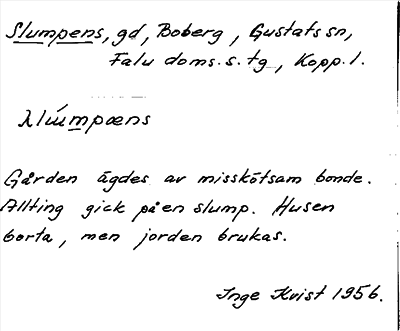 Slumpens, gd, Boberg, Gustafs sn,
Falu doms. s. tg, Kopp. l.
Gården ägdes av misskötsam bonde.
Allting gick på en slump. Husen
borta, men jorden brukas.
Inge Kvist 1956.